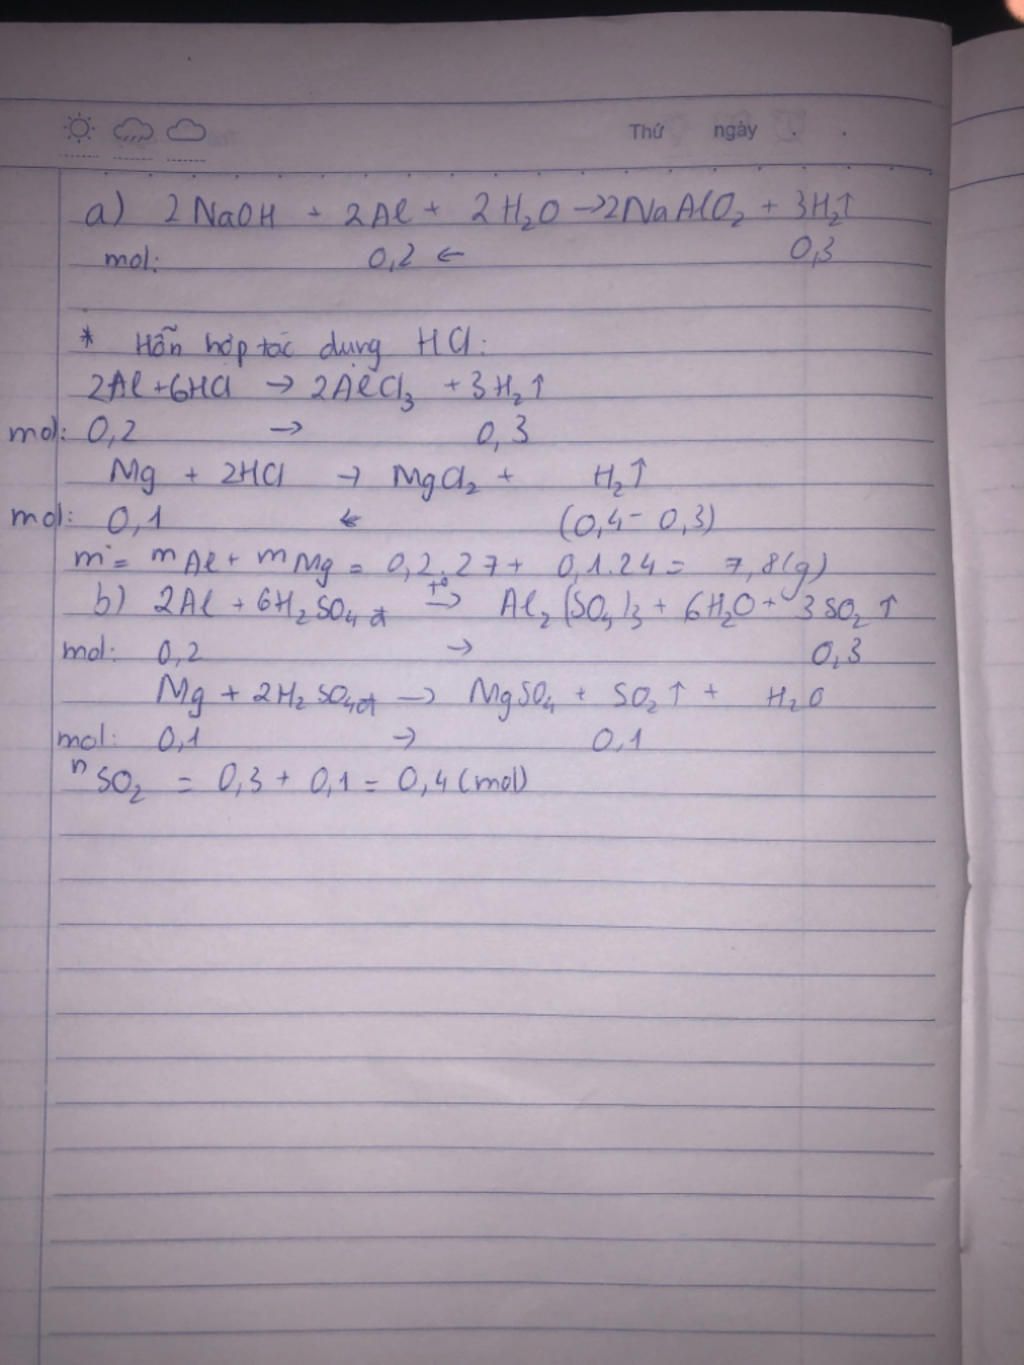 Thứ ngày
a) 2NaOH + 2Al + 2H₂O → 2NaAlO₂ + 3H₂↑
mol: 0,2 ← 0,3
* Hỗn hợp tác dụng HCl:
2Al + 6HCl → 2AlCl₃ + 3H₂↑
mol: 0,2 → 0,3
Mg + 2HCl → MgCl₂ + H₂↑
mol: 0,1 ← (0,4 - 0,3)
m = mAl + mMg = 0,2.27 + 0,1.24 = 7,8(g)
b) 2Al + 6H₂SO₄ đ →(t°) Al₂(SO₄)₃ + 6H₂O + 3SO₂↑
mol: 0,2 → 0,3
Mg + 2H₂SO₄ đ → MgSO₄ + SO₂↑ + H₂O
mol: 0,1 → 0,1
nSO₂ = 0,3 + 0,1 = 0,4 (mol)